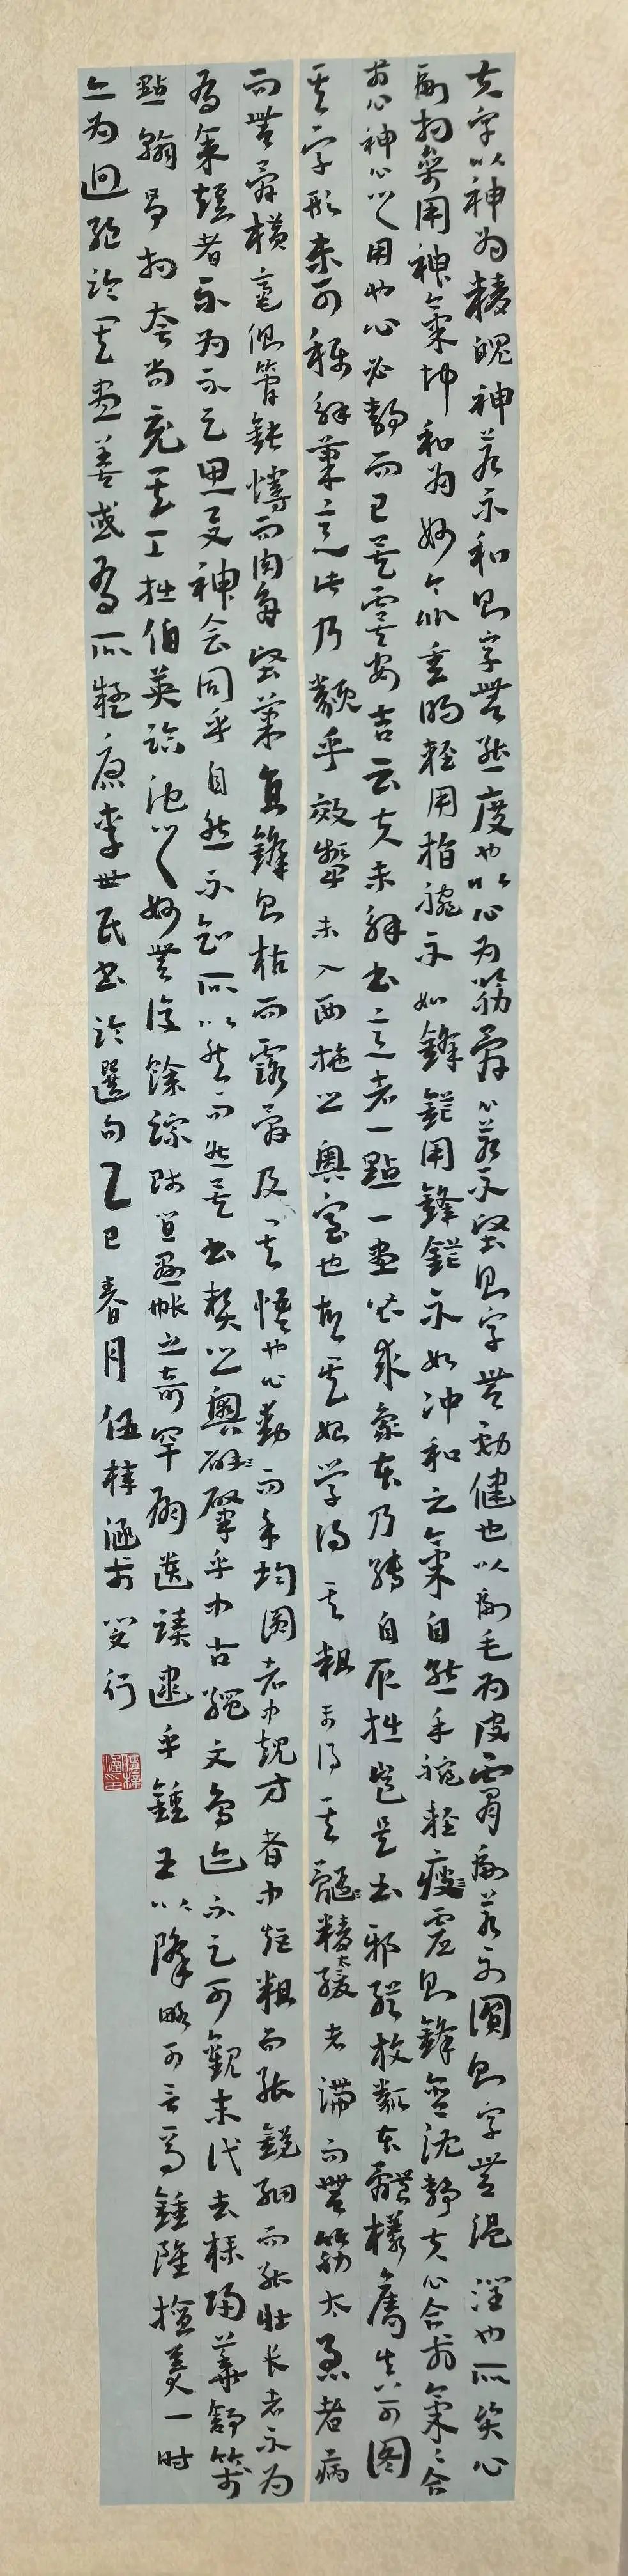 夫字以神为精魄神若不和则字无态度也以心为筋骨心若不坚则字无劲健也以副毛为皮肤副若不圆则字无温润也所资心
副相参用神气冲和为妙今比重明轻用指腕不如锋铓用锋铓不如冲和之气自然手腕轻虚则锋含沈静夫心合于气气合
于心神心之用也心必静而已矣虞安吉云夫未解书意者一点一画皆求象本乃转自取拙岂是书邪纵放类本体样夺真可图
其字形未可称解笔意此乃类乎效颦未入西施之奥室也故其始学得其粗未得其髓精太缓者滞而无筋太急者病
而无骨横毫侧管则钝慢而肉多竖笔直锋则枯而露骨及其悟也心动而手均圆者中规方者中矩粗而能锐细而能壮长者不为
有余短者不为不足思与神会同乎自然不知所以然而然矣书契之兴肇乎中古绳文鸟迹不足可观末代去朴归华舒笺
点翰争相夸尚竞其工拙伯英临池之妙无复余踪师宜悬帐之奇罕有遗迹逮乎钟王以降略可言焉钟虽擅美一时
亦为迥绝论其尽善或有所疑唐李世民书论选句乙巳春月伍梓涵于安行